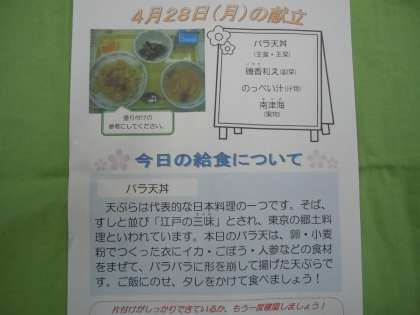 4月28日(月)の献立
バラ天丼
(主食・主菜)
磯香和え(副菜)
のっぺい汁(汁物)
南津海
(果物)
盛り付けの
参考にしてください。
今日の給食について
バラ天丼
天ぷらは代表的な日本料理の一つです。そば、
すしと並び「江戸の三味」とされ、東京の郷土料
理といわれています。本日のバラ天は、卵・小麦
粉でつくった衣にイカ・ごぼう・人参などの食材
をまぜて、バラバラに形を崩して揚げた天ぷらで
す。ご飯にのせ、タレをかけて食べましょう!
片付けがしっかりできているか、もう一度確認しましょう!